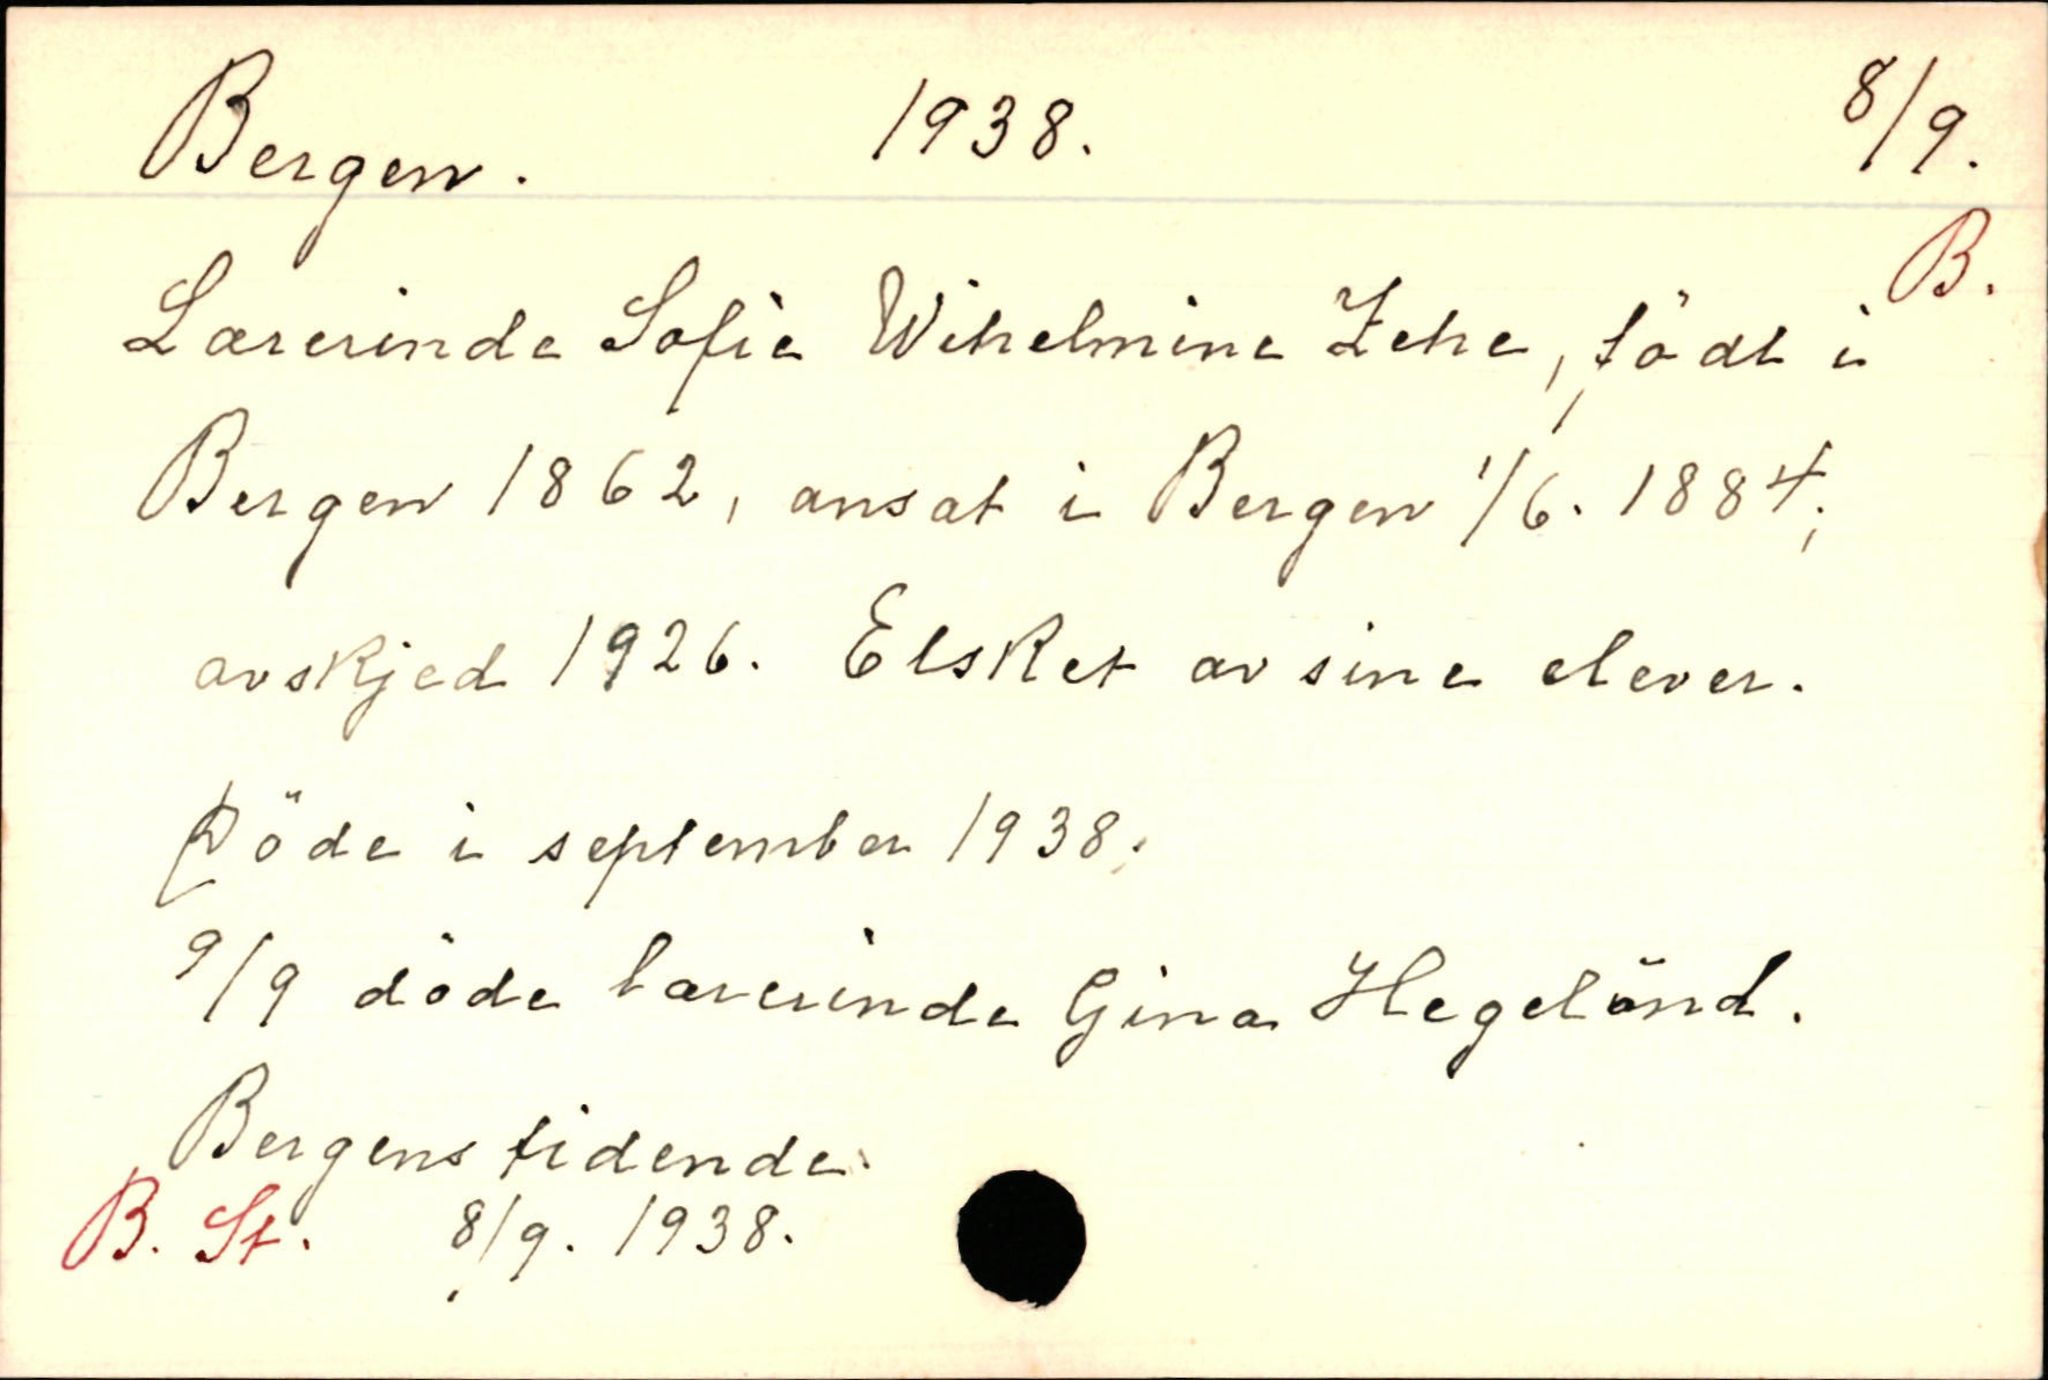 Bergen. 1938. 8/9.
B.
Lærerinde Sofie Wihelmine Zehe, födt i
Bergen 1862, ansat i Bergen 1/6. 1884;
avskjed 1926. Elsket av sine elever.
Döde i september 1938.
9/9 döde lærerinde Gina Hegelönd.
Bergens tidende.
B. St. 8/9. 1938.